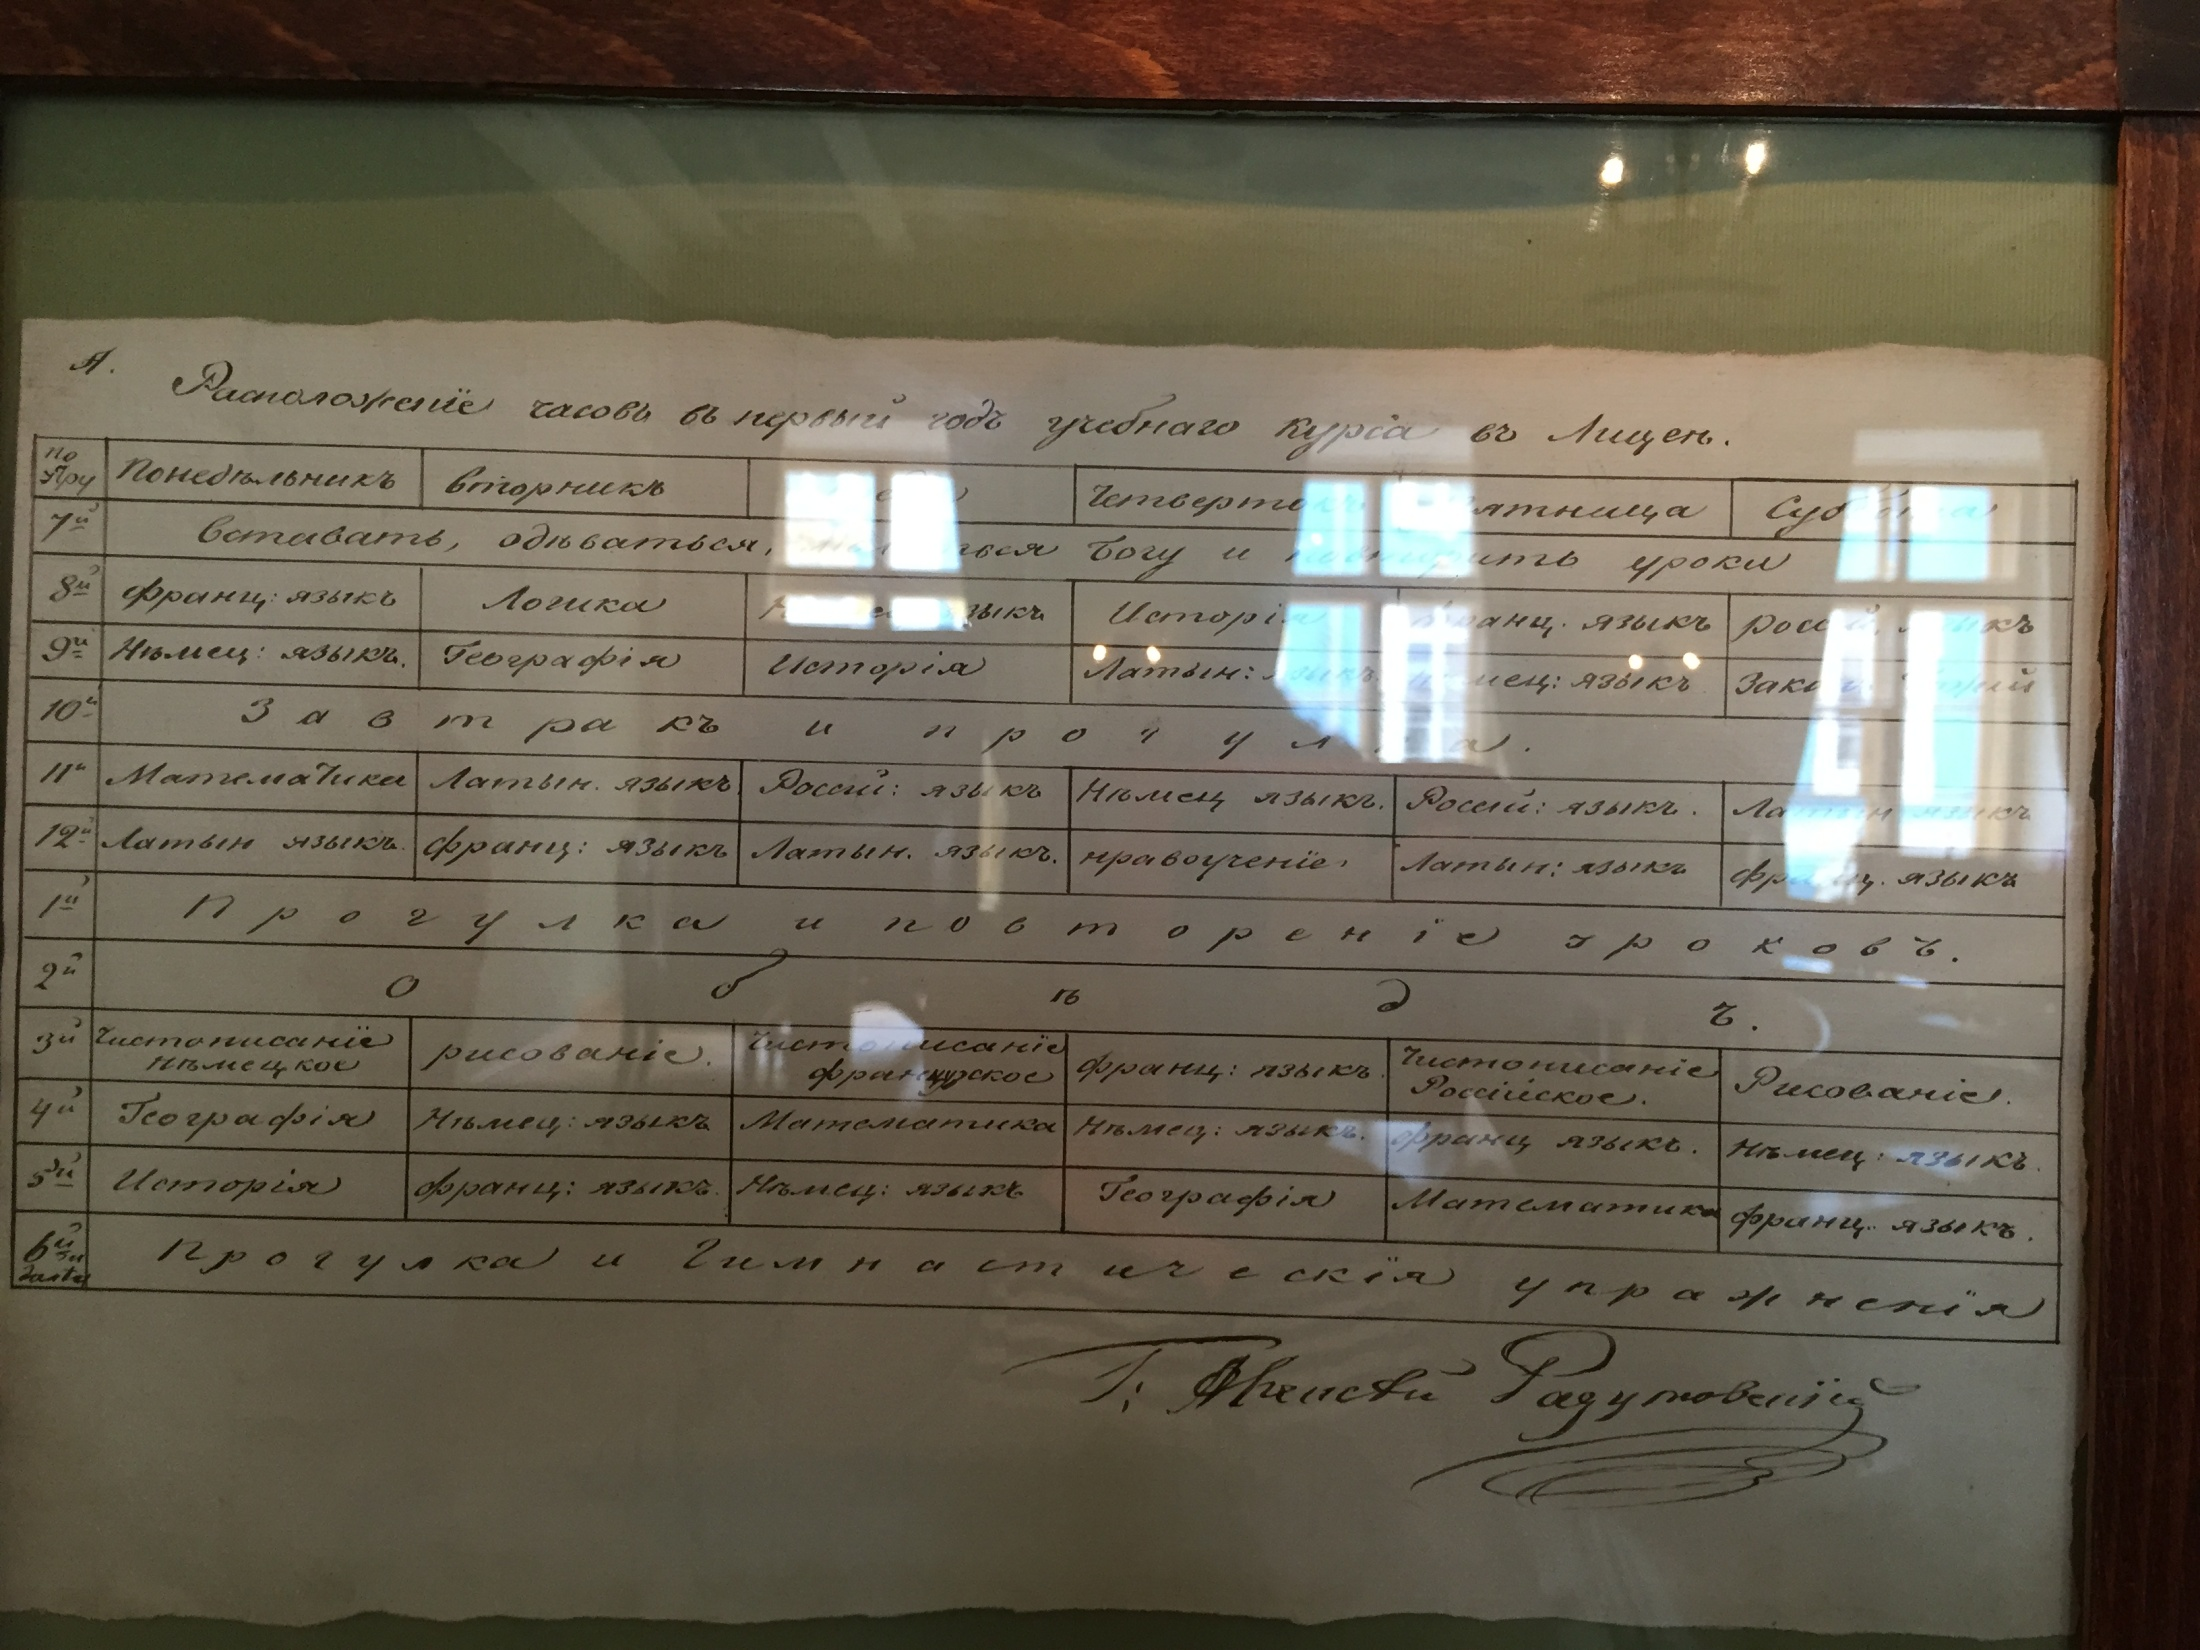 А.
Расположенїе часовъ въ первый годъ учебнаго курса въ Лицеѣ.
по Утру Понедѣльникъ Вторникъ Четвертокъ Пятница Суббота
7й Вставать, одѣваться, молиться Богу и повторить уроки
8й Франц: языкъ Логика языкъ Исторія Франц. языкъ Россій. языкъ
9й Нѣмец: языкъ. Географія Исторія Латын: языкъ Нѣмец: языкъ Закон. Божій
10й Завтракъ и прогулка.
11й Математика Латын. языкъ Россій: языкъ Нѣмец языкъ. Россій: языкъ. Латын языкъ
12й Латын языкъ. Франц: языкъ Латын. языкъ. Нравоученїе Латын: языкъ Франц. языкъ
1й Прогулка и повторенїе уроковъ.
2й Обѣдъ.
3й Чистописанїе Нѣмецкое Рисованіе. Чистописанїе Французское Франц: языкъ. Чистописаніе Россійское. Рисованіе.
4й Географія Нѣмец: языкъ Математика Нѣмец: языкъ. Франц языкъ. Нѣмец: языкъ.
5й Исторія Франц: языкъ. Нѣмец: языкъ Географія Математика Франц. языкъ.
6й Прогулка и Гимнастическїя упражненїя
Г: